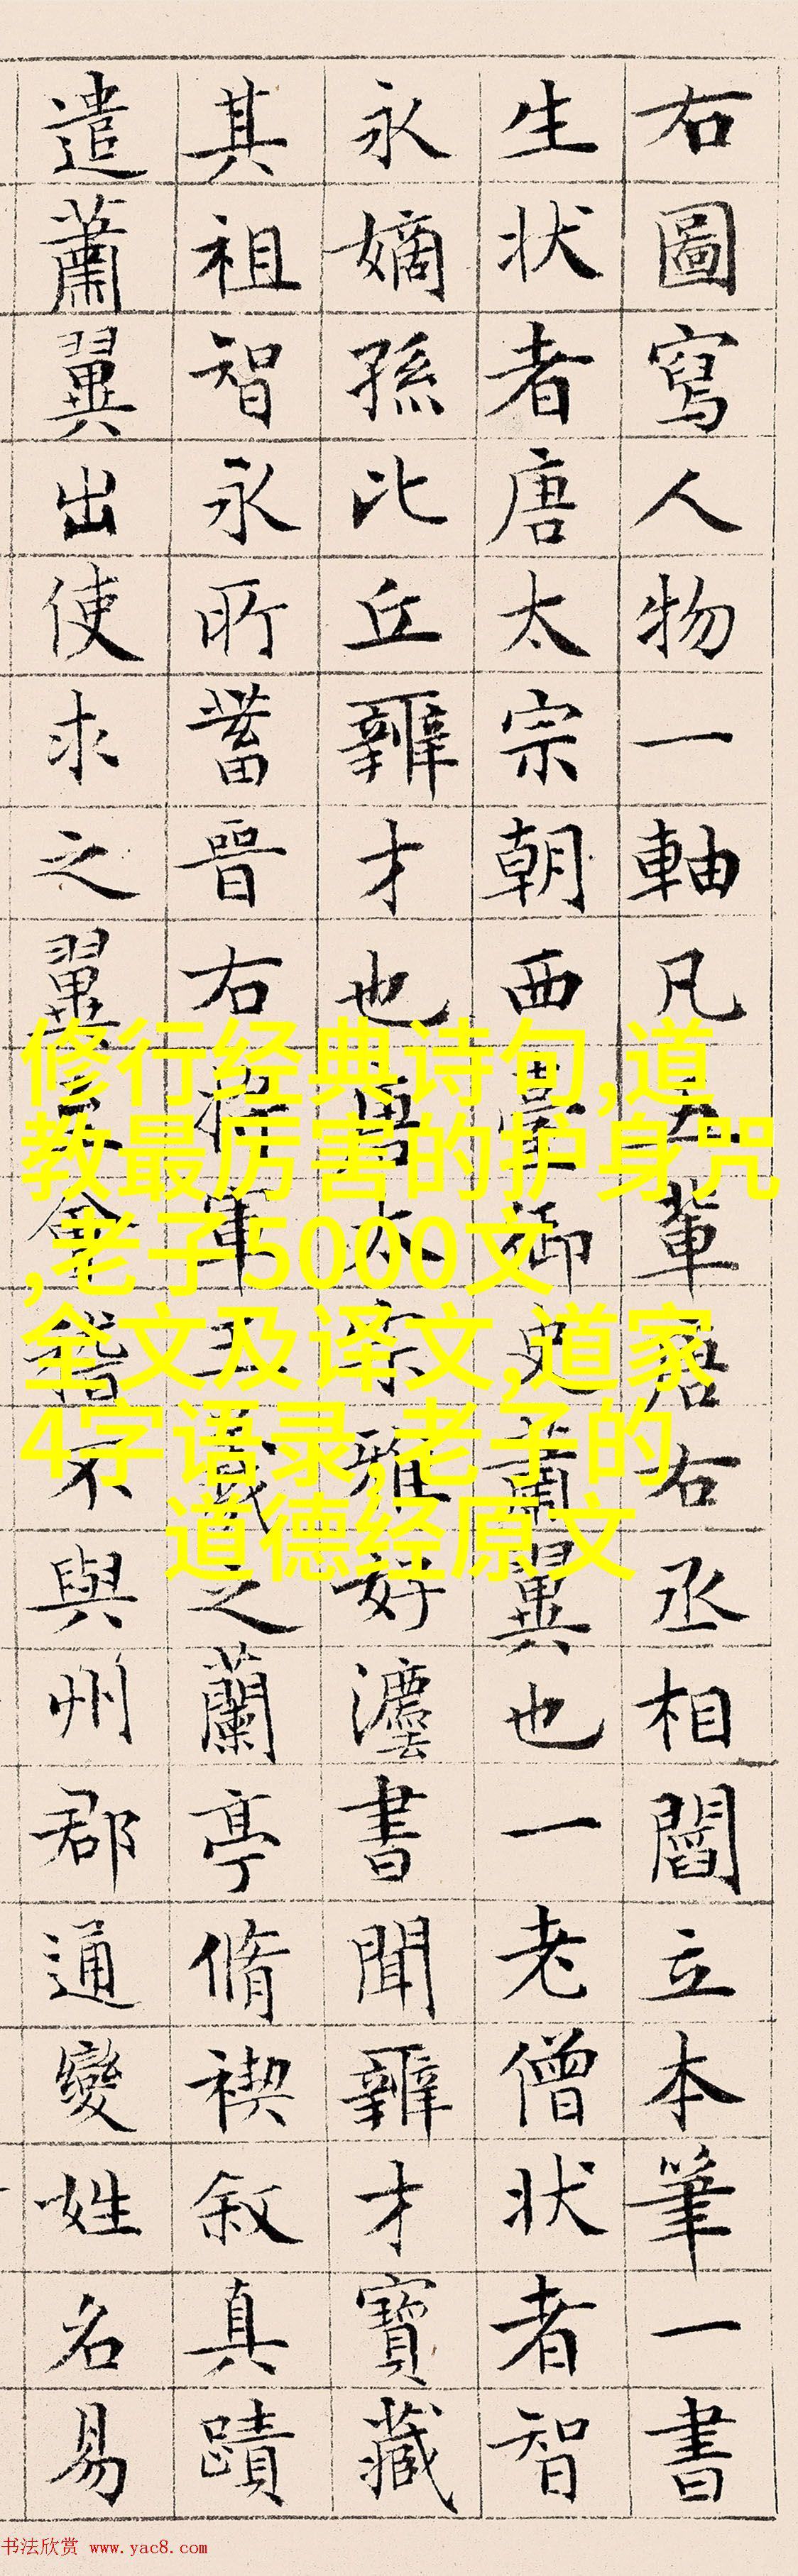 右圖寫人物一軸凡五輩唐右丞相閻立本筆一書
生状者唐太宗朝西臺御史蕭翼也一老僧状者智
永嫡孫比丘辨才也唐太宗雅好灋書聞辨才寶藏
其祖智永所蓄晉右將軍王羲之蘭亭脩禊叙真蹟
遣蕭翼出使求之翼至會稽不與州郡通變姓名易
修行经典诗句,道
教最厉害的护身咒
,老子5000文
全文及译文,道家
4字语录,老子的
道德经原文
书法欣赏 www.yac8.com